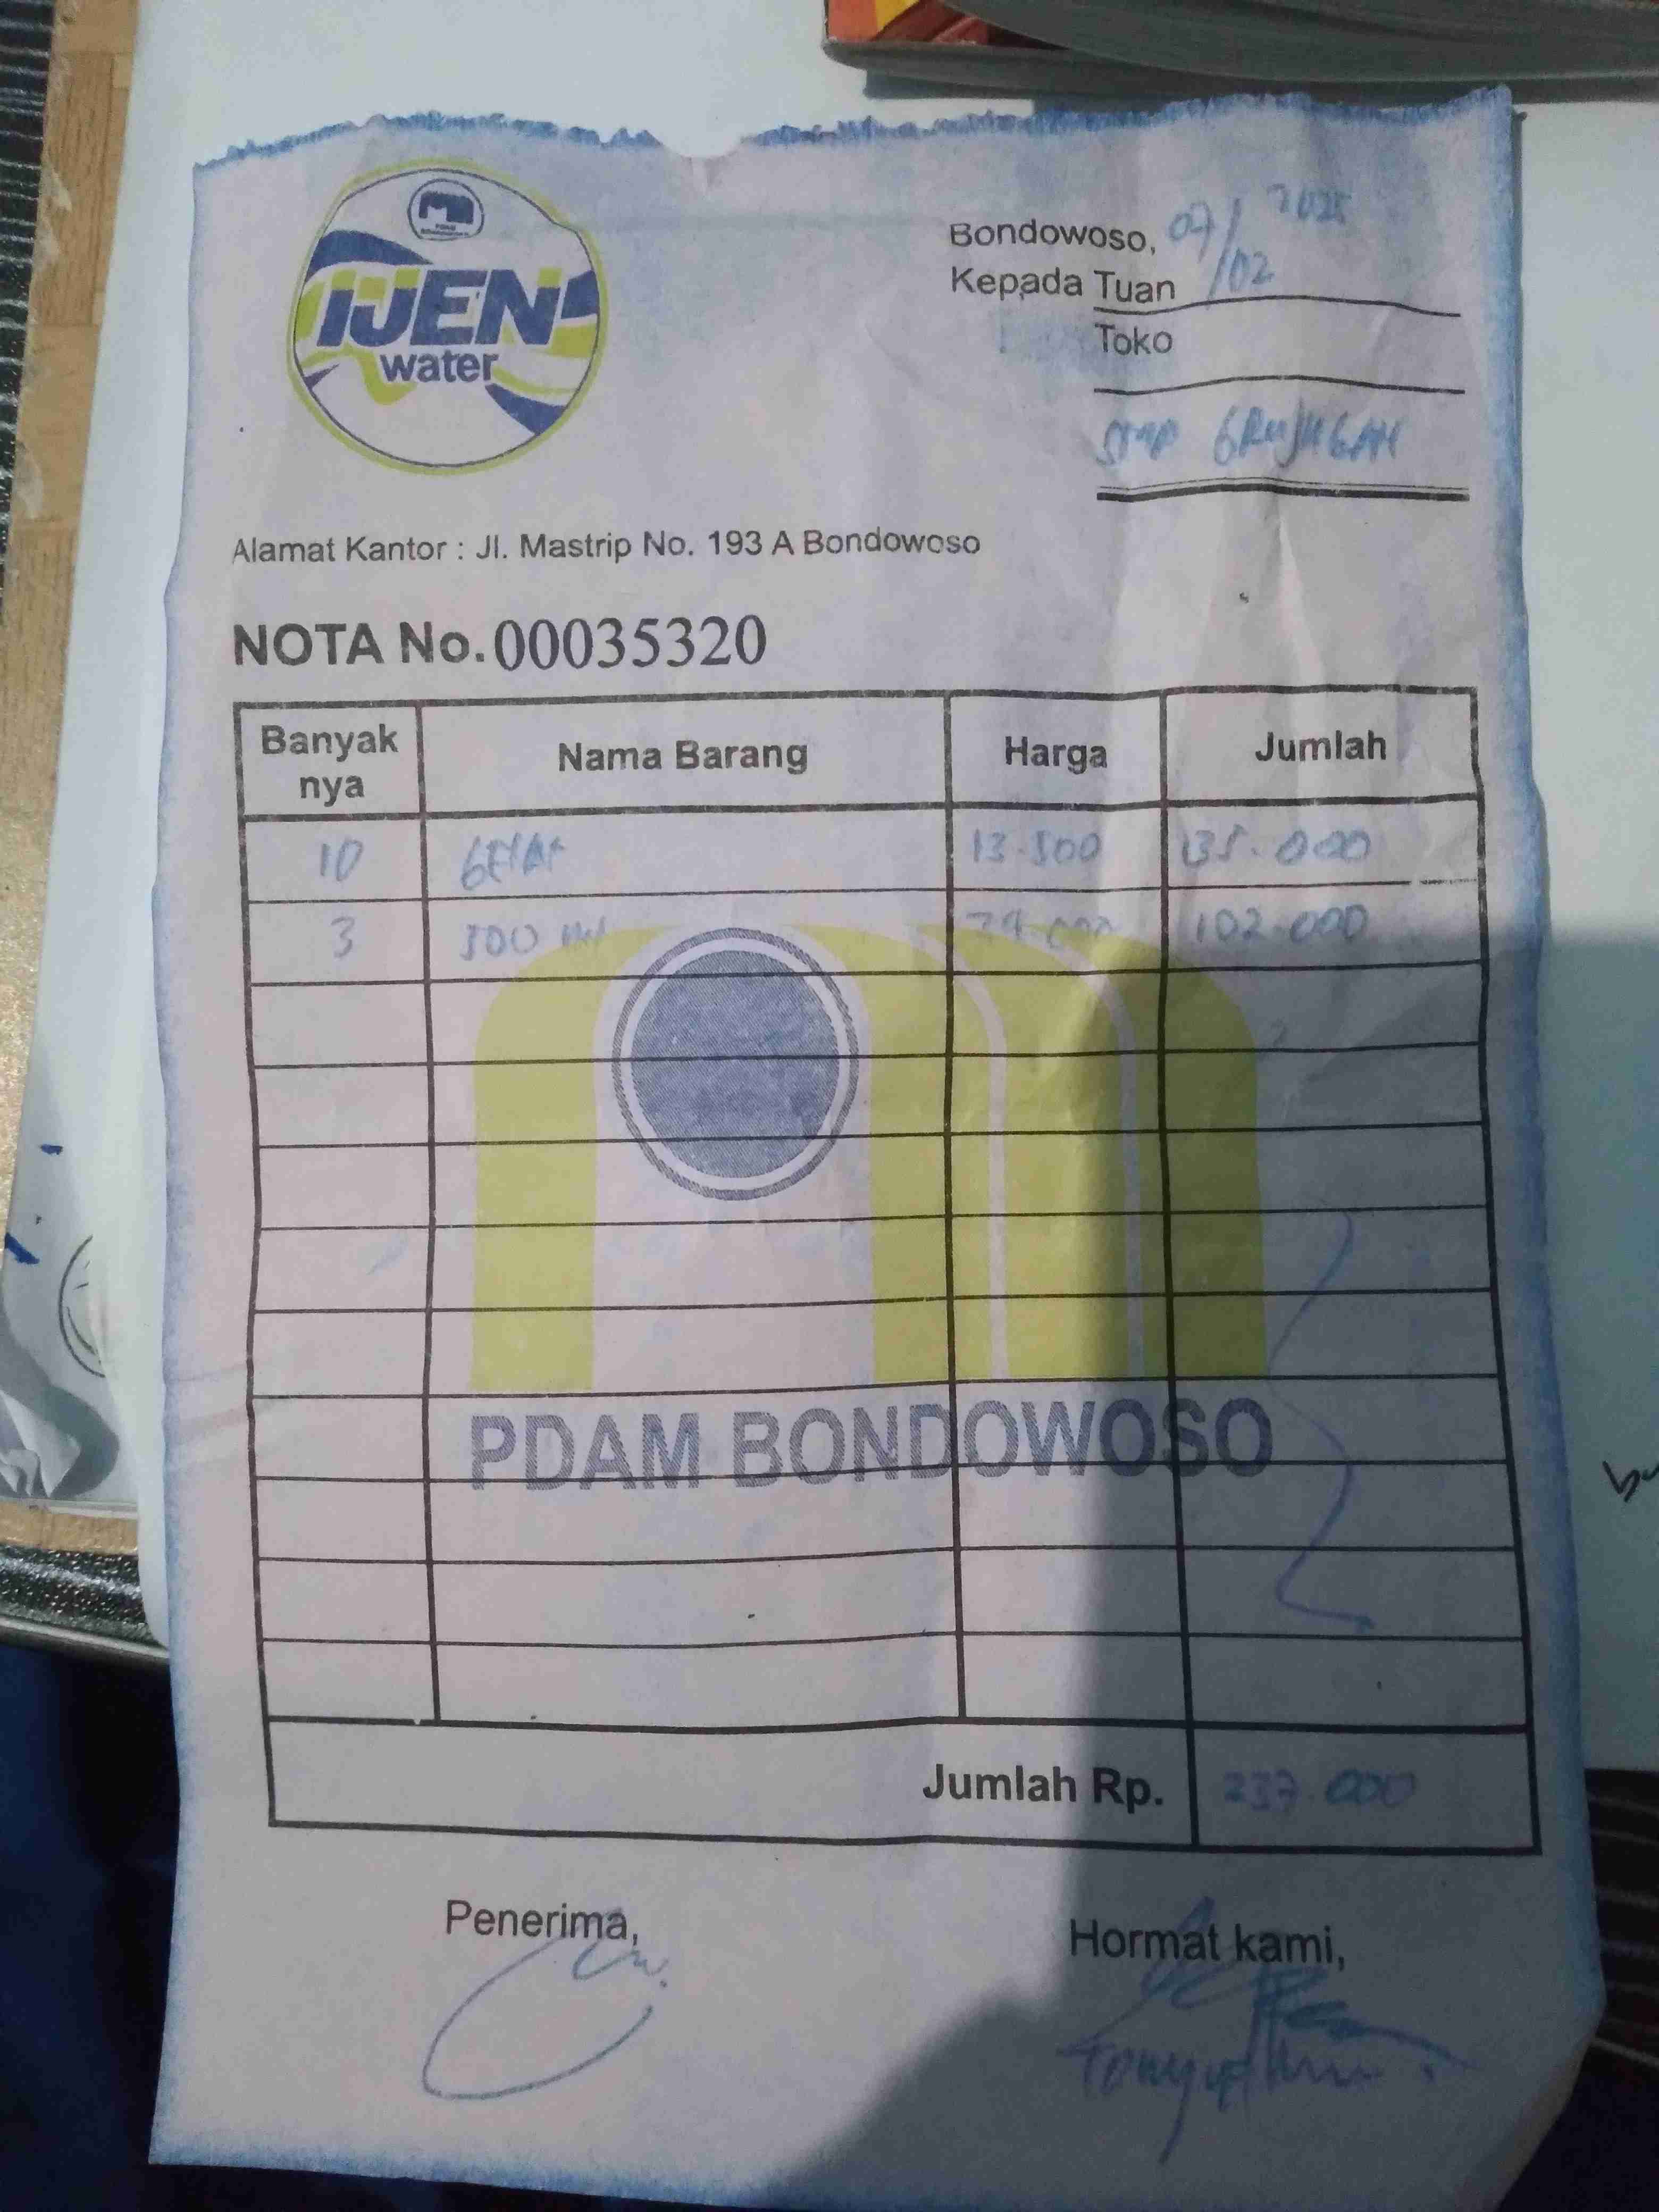 IJEN
water
Bondowoso, 07/02 2025
Kepada Tuan
Toko
SMP GRUJUGAN
Alamat Kantor : Jl. Mastrip No. 193 A Bondowoso
NOTA No. 00035320
Banyak nya Nama Barang Harga Jumlah
10 GELAS 13.500 135.000
3 500 ml 34.000 102.000
PDAM BONDOWOSO
Jumlah Rp. 237.000
Penerima, Hormat kami,